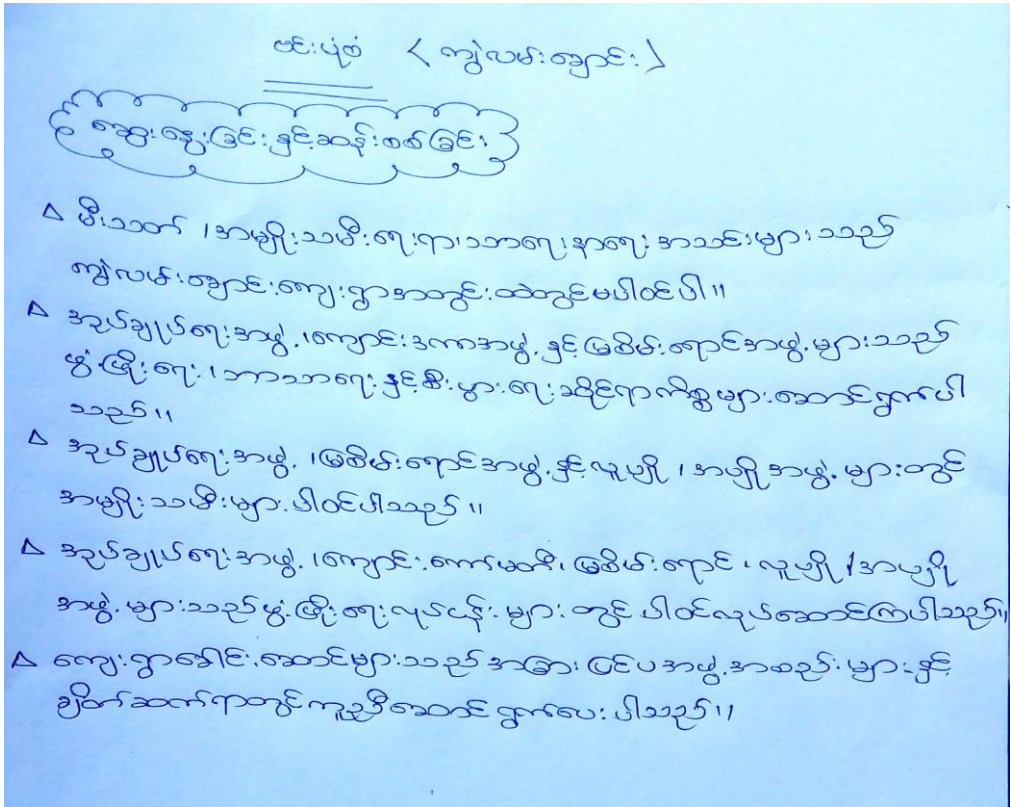 ဗင်းပုံစံ (ကျွဲလမ်းချောင်း)
ဆွေးနွေးခြင်းနှင့်ဆန်းစစ်ခြင်း
△ မီးသတ် ၊အမျိုးသမီးရေးရာ၊သာရေးနာရေး အသင်းများသည်
ကျွဲလမ်းချောင်းကျေးရွာအတွင်းထဲတွင်မပါဝင်ပါ။
△ အုပ်ချုပ်ရေးအဖွဲ့ ၊ကျောင်းဒကာအဖွဲ့ နှင့် မြစိမ်းရောင်အဖွဲ့များသည်
ဖွံ့ဖြိုးရေး ၊ဘာသာရေး နှင့်စီးပွားရေးဆိုင်ရာကိစ္စများဆောင်ရွက်ပါ
သည်။
△ အုပ်ချုပ်ရေးအဖွဲ့ ၊မြစိမ်းရောင်အဖွဲ့နှင့်လူပျို ၊အပျိုအဖွဲ့များတွင်
အမျိုးသမီးများပါဝင်ပါသည်။
△ အုပ်ချုပ်ရေးအဖွဲ့ ၊ကျောင်းကော်မတီ၊ မြစိမ်းရောင် ၊လူပျို /အပျို
အဖွဲ့များသည်ဖွံ့ဖြိုးရေးလုပ်ငန်းများတွင် ပါဝင်လုပ်ဆောင်ကြပါသည်။
△ ကျေးရွာခေါင်းဆောင်များသည်အခြားပြင်ပအဖွဲ့အစည်းများနှင့်
ချိတ်ဆက်ရာတွင်ကူညီဆောင်ရွက်ပေးပါသည်။